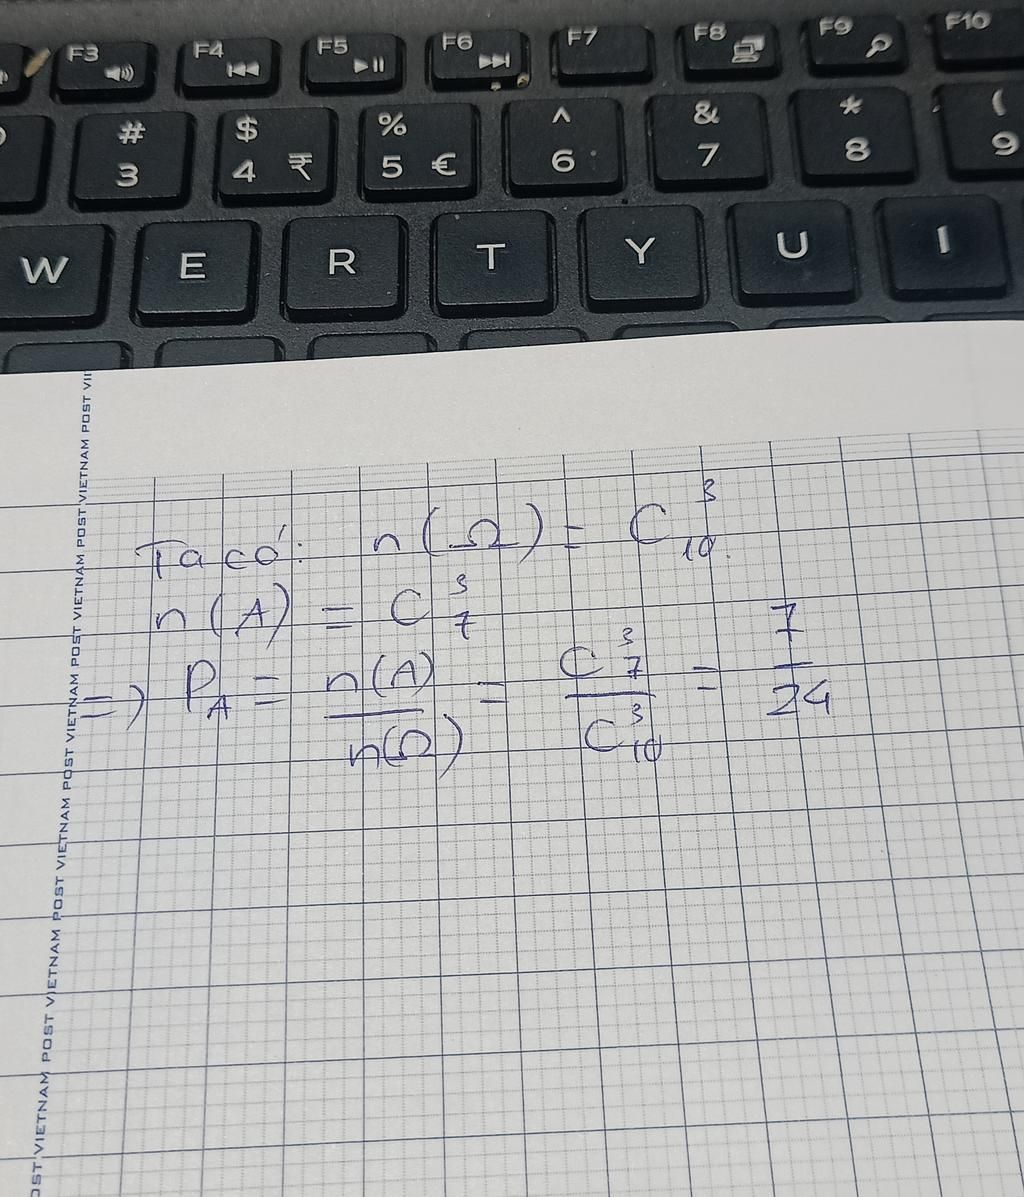 F3 F4 F5 F6 F7 F8 F9 F10
# $ % ^ & * (
3 4 ₹ 5 € 6 7 8 9
W E R T Y U I
VIETNAM POST VIETNAM POST VIETNAM POST VIETNAM POST VIETNAM POST VIETNAM POST VIETNAM POST
Ta có: n(Ω) = C₁₀³
n(A) = C₇³
=> P_A = n(A)/n(Ω) = C₇³/C₁₀³ = 7/24